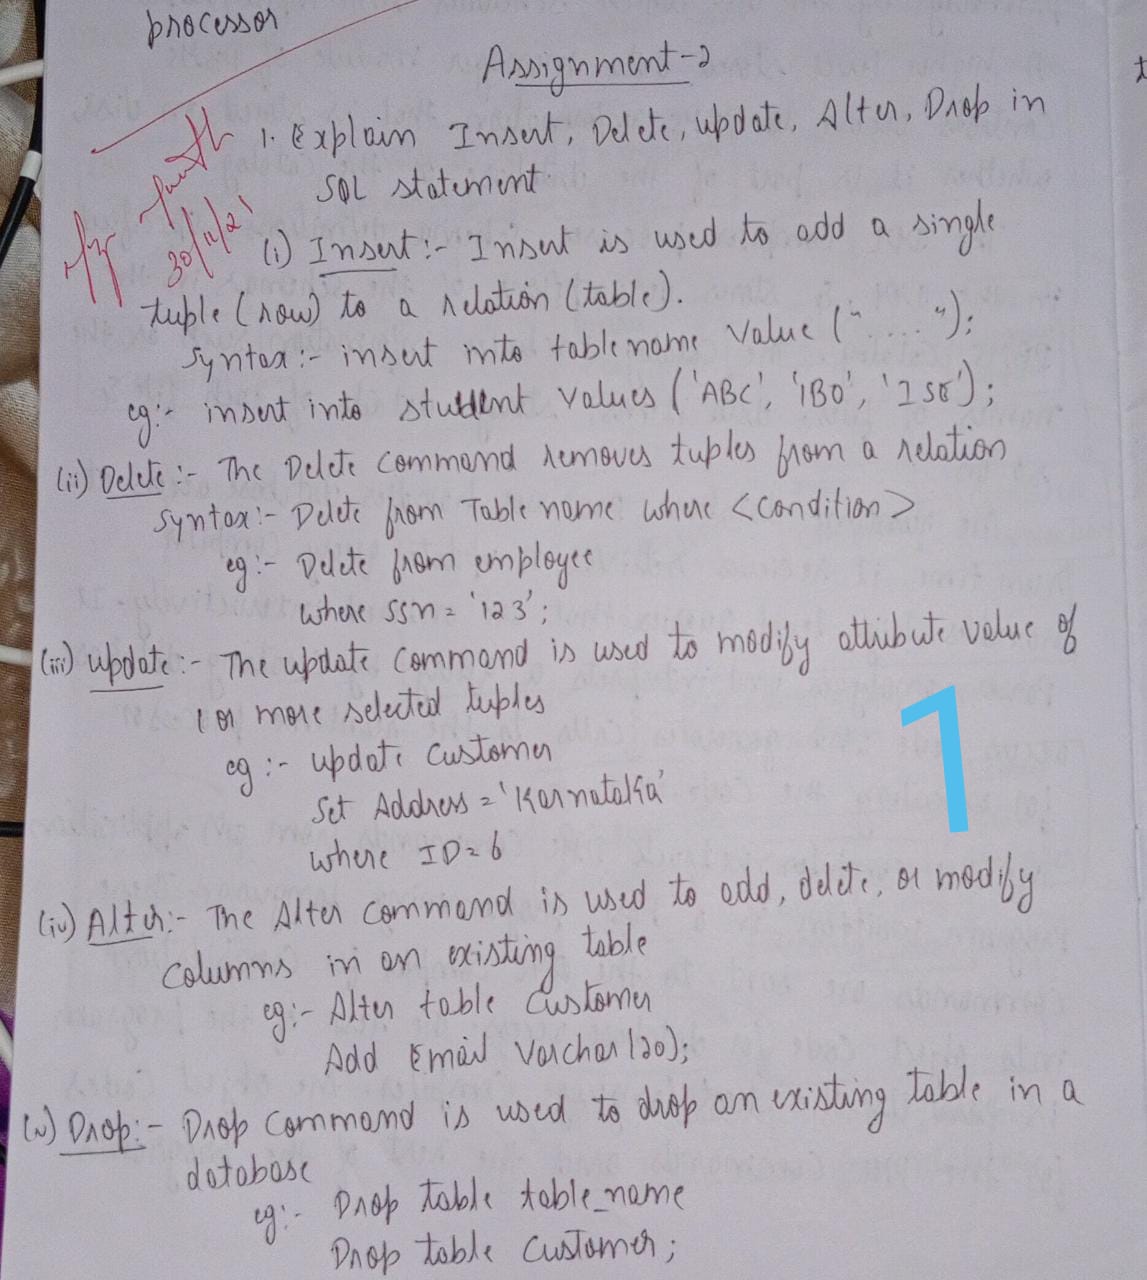 processor
Assignment-2
1. Explain Insert, Delete, update, Alter, Drop in
SQL statement
30/11/21
(i) Insert :- Insert is used to add a single
tuple (row) to a relation (table).
Syntax :- insert into table name value (" .... ");
eg:- insert into student values ('ABC', 'IBO', 'ISE');
(ii) Delete :- The Delete command removes tuples from a relation
Syntax :- Delete from Table name where <condition>
eg :- Delete from employee
where ssn = '123';
(iii) update :- The update command is used to modify attribute value of
1 or more selected tuples
eg :- update customer
Set Address = 'Karnataka'
where ID=6
1
(iv) Alter :- The Alter command is used to add, delete, or modify
columns in an existing table
eg:- Alter table customer
Add Email Varchar(20);
(v) Drop :- Drop command is used to drop an existing table in a
database
eg:- Drop table table_name
Drop table customer;